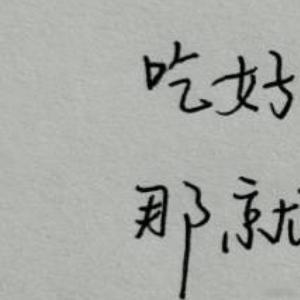 吃好
那就